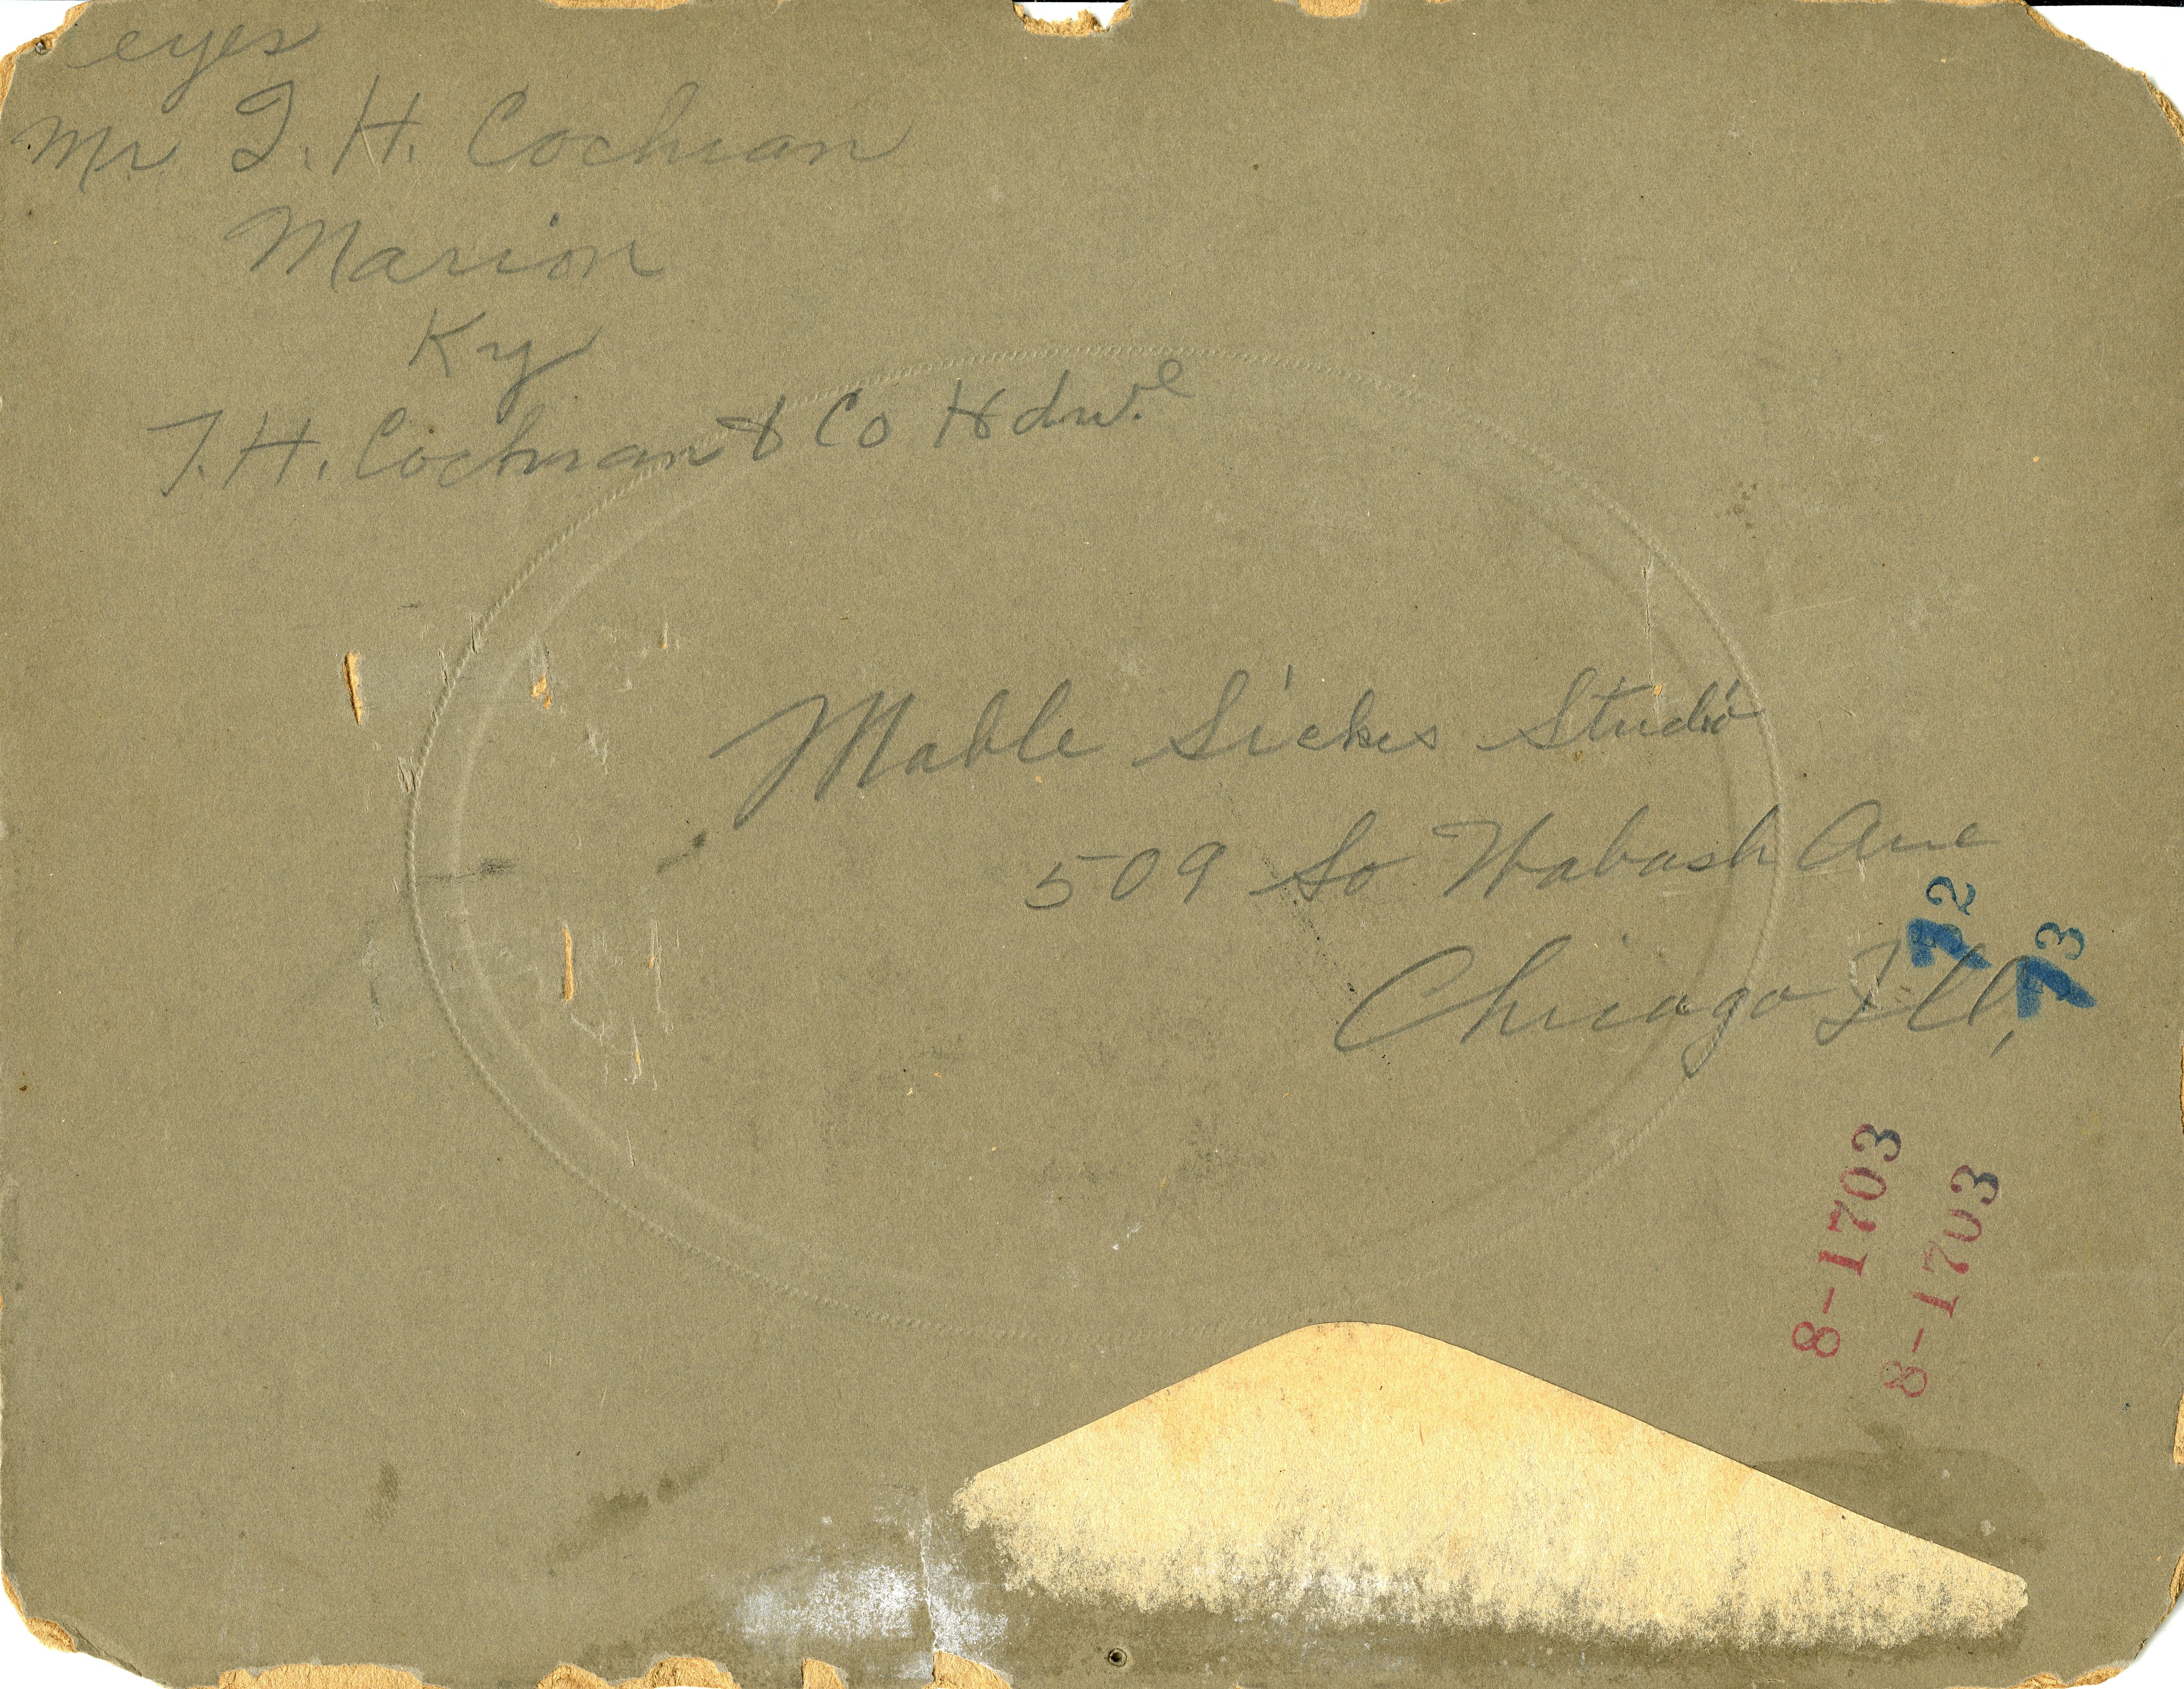 eyes
Mr T. H. Cochran
Marion
Ky
T. H. Cochran & Co Hdw.e
Mable Sickes Studio
509 So Wabash Ave
Chicago Ill,
72
73
8-1703
8-1703